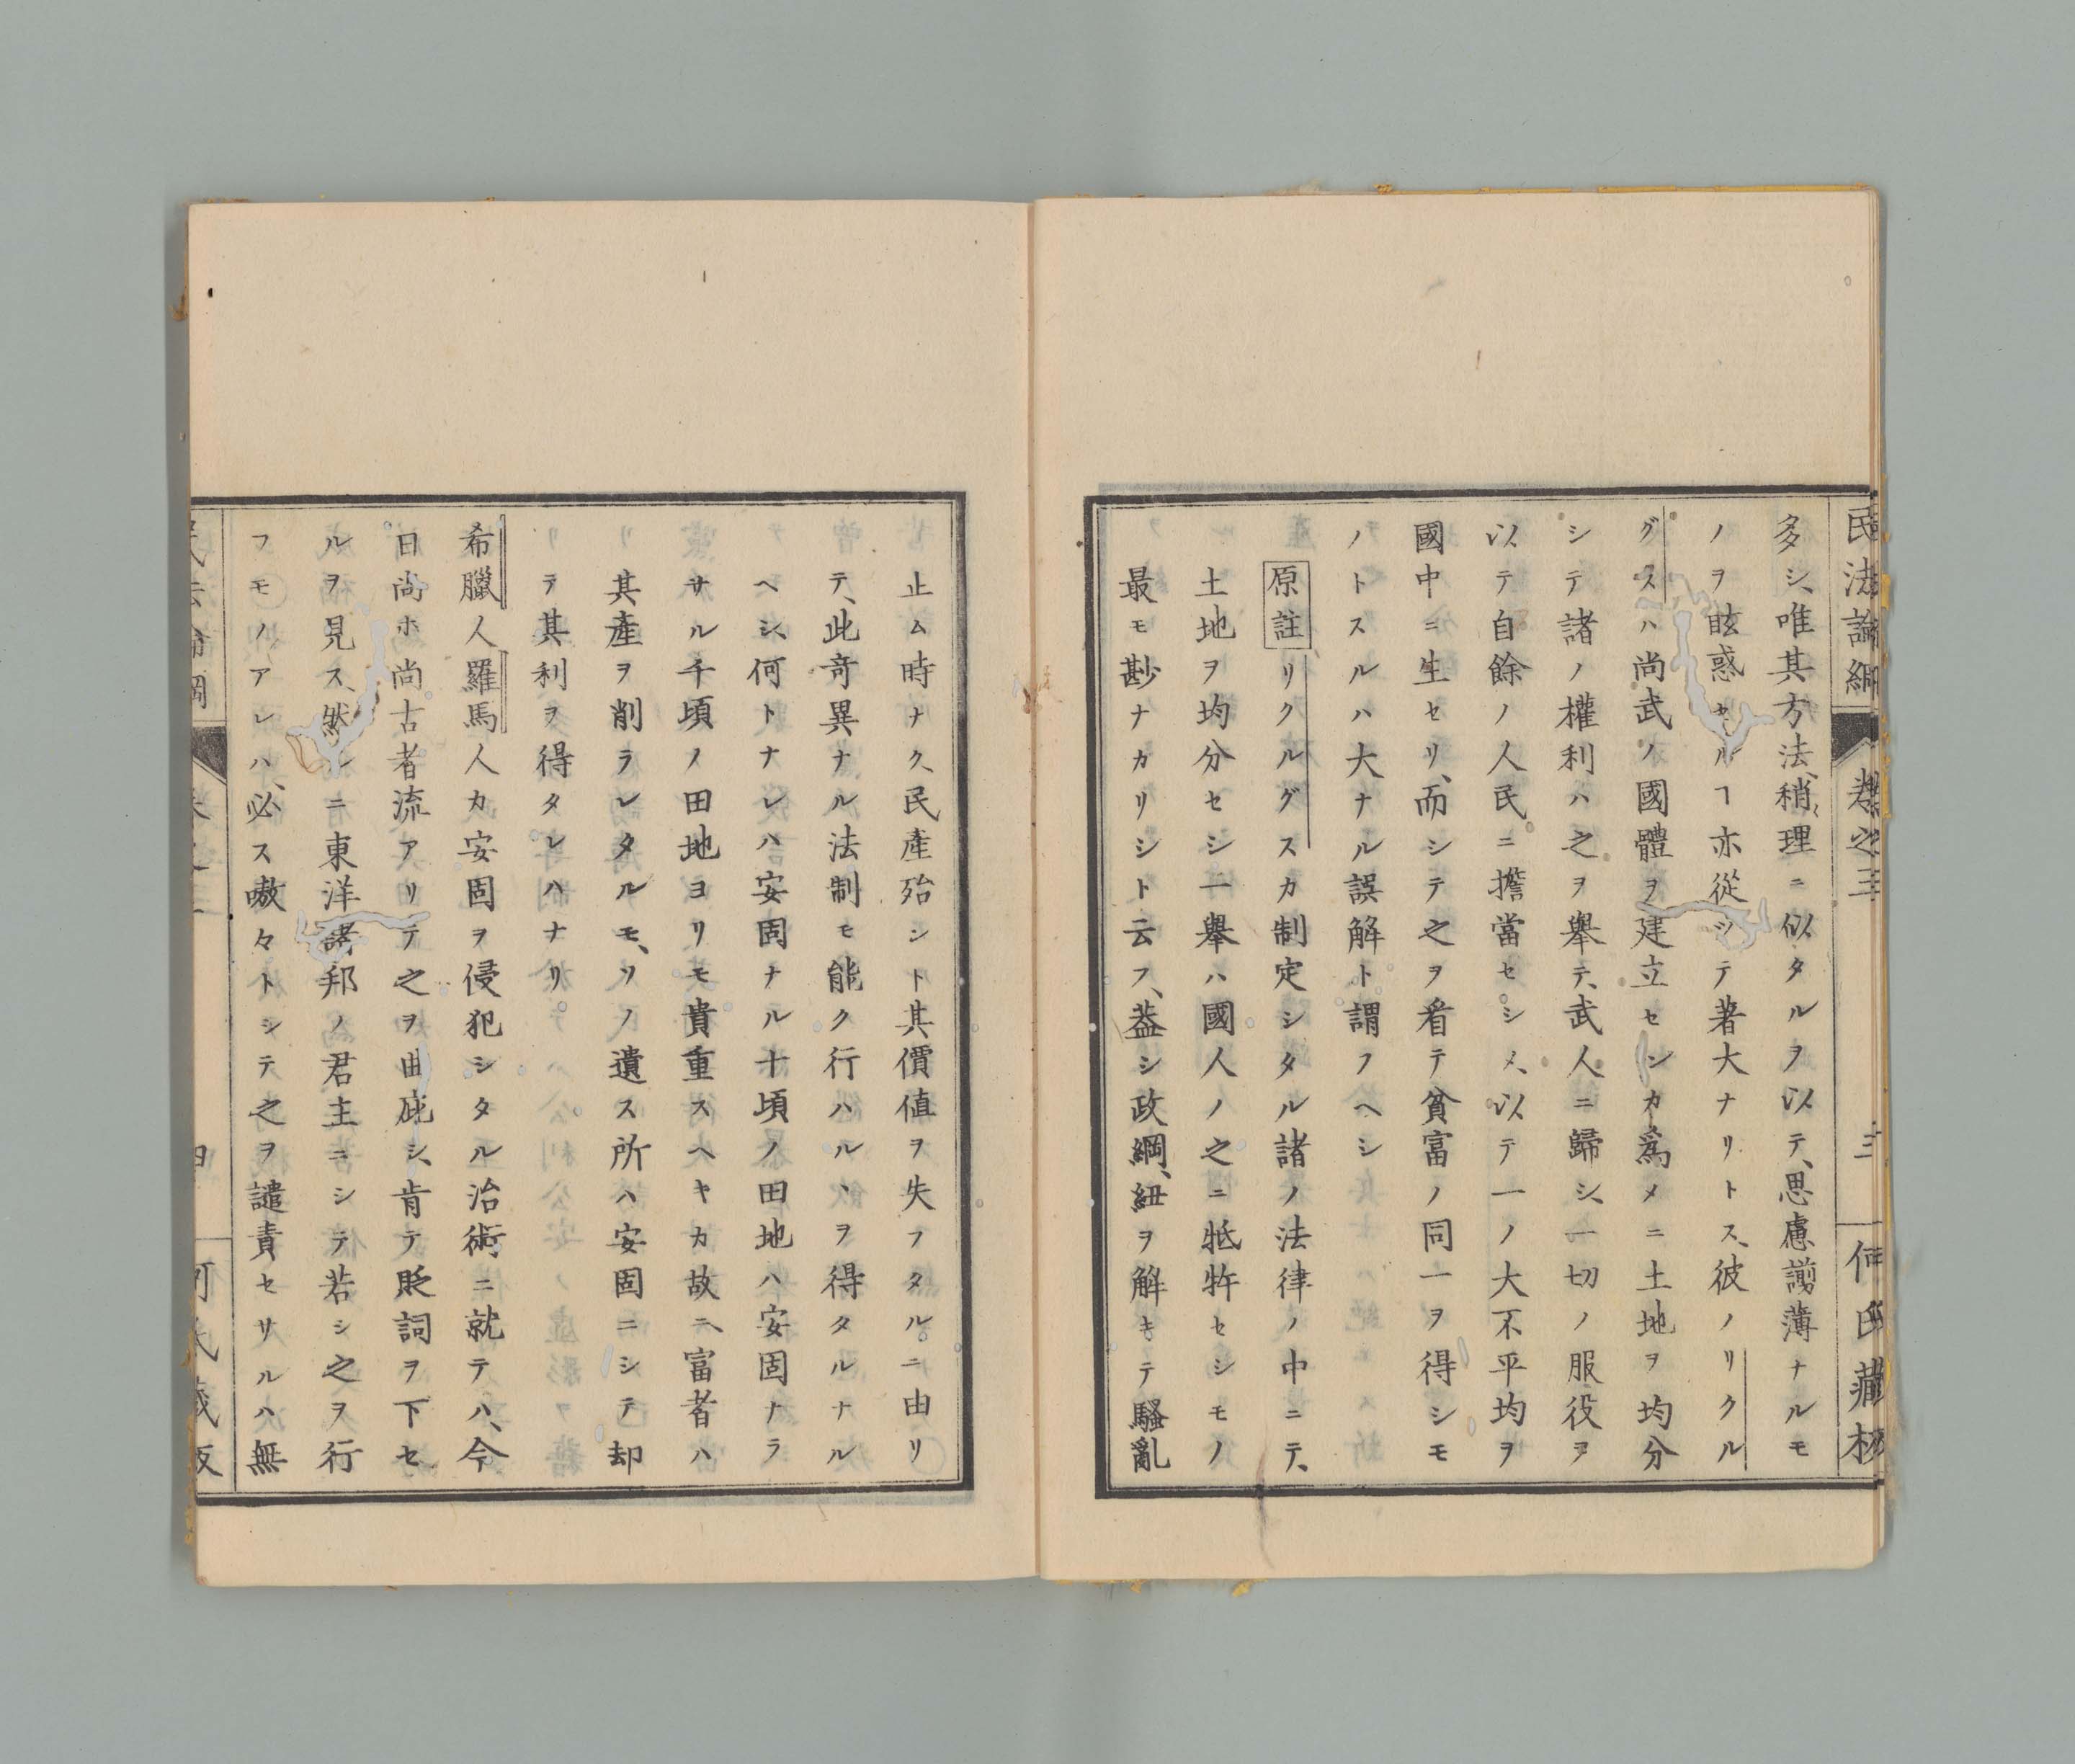 民法論綱 卷之三 三 何氏藏板
多シ、唯其方法、稍理ニ似タルヲ以テ、思慮謭薄ナルモ
ノヲ眩惑セルヿ亦從シテ著大ナリトス、彼ノリクル
グスハ尚武ノ國體ヲ建立センカ爲メニ土地ヲ均分
シテ諸ノ權利ハ之ヲ擧テ、武人ニ歸シ、一切ノ服役ヲ
以テ自餘ノ人民ニ擔當セシメ、以テ一ノ大不平均ヲ
國中ニ生セリ、而シテ之ヲ看テ貧富ノ同一ヲ得シモ
ノトスルハ大ナル誤解ト謂フヘシ
原註 リクルグスカ制定シタル諸ノ法律ノ中ニテ、
土地ヲ均分セシ一擧ハ國人ノ之ニ牴牾セシモノ
最モ尠ナカリシト云フ、葢シ政綱、紐ヲ解キテ騷亂
止ム時ナク、民產殆シト其價値ヲ失フタルニ由リ
テ、此奇異ナル法制モ能ク行ハルヽヲ得タルナル
ヘシ、何トナレハ安固ナル十頃ノ田地ハ安固ナラ
サル千頃ノ田地ヨリモ貴重スヘキカ故ニ、富者ハ
其產ヲ削ラレタルモ、ソノ遺ス所ハ安固ニシテ却
テ其利ヲ得タレハナリ
希臘人羅馬人カ安固ヲ侵犯シタル治術ニ就テハ、今
日尚ホ尚古者流アリテ之ヲ曲庇シ、肯テ貶詞ヲ下セ
ルヲ見ス、然レニ東洋諸邦ノ君主ニシテ若シ之ヲ行
フモノアレハ、必ス嗷々トシテ之ヲ譴責セサルハ無